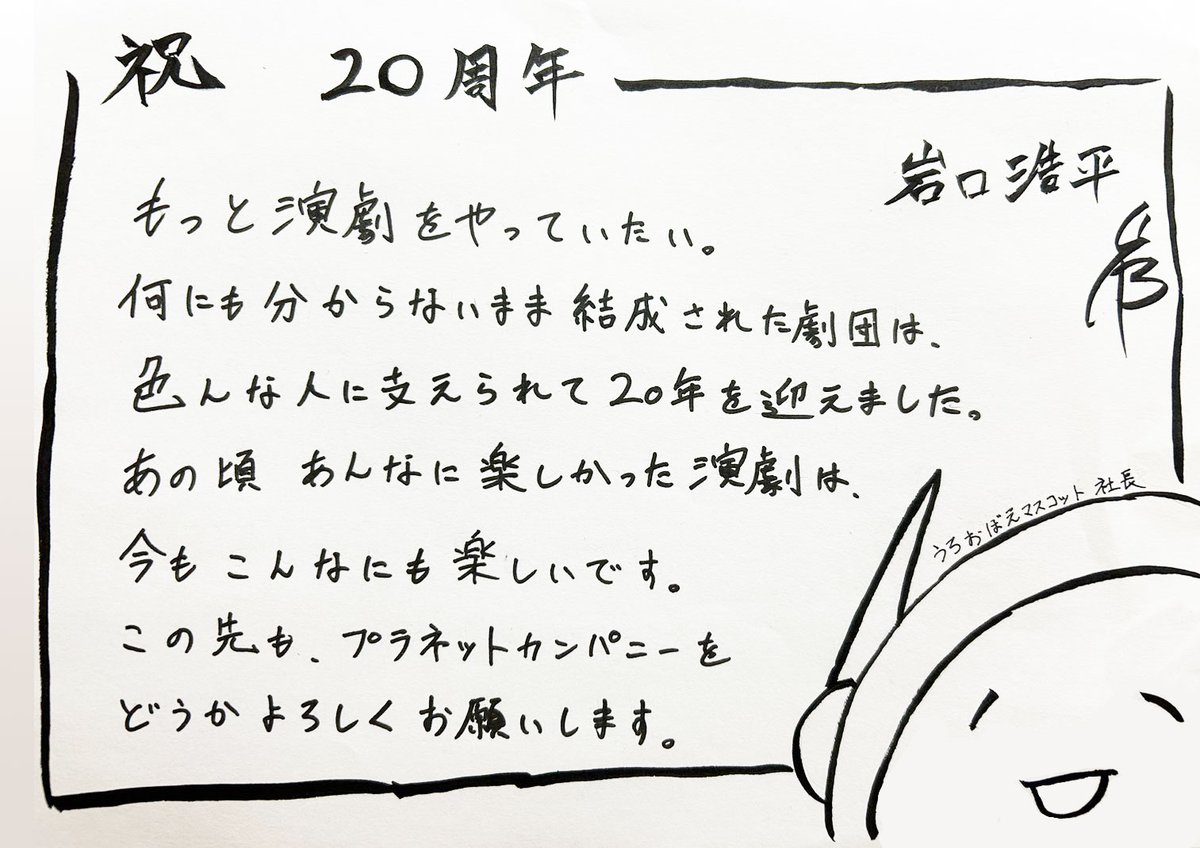 祝　20周年
岩口浩平
もっと演劇をやっていたい。
何にも分からないまま結成された劇団は、
色んな人に支えられて20年を迎えました。
あの頃 あんなに楽しかった演劇は、
今もこんなにも楽しいです。
この先も、プラネットカンパニーを
どうかよろしくお願いします。
うろおぼえマスコット 社長